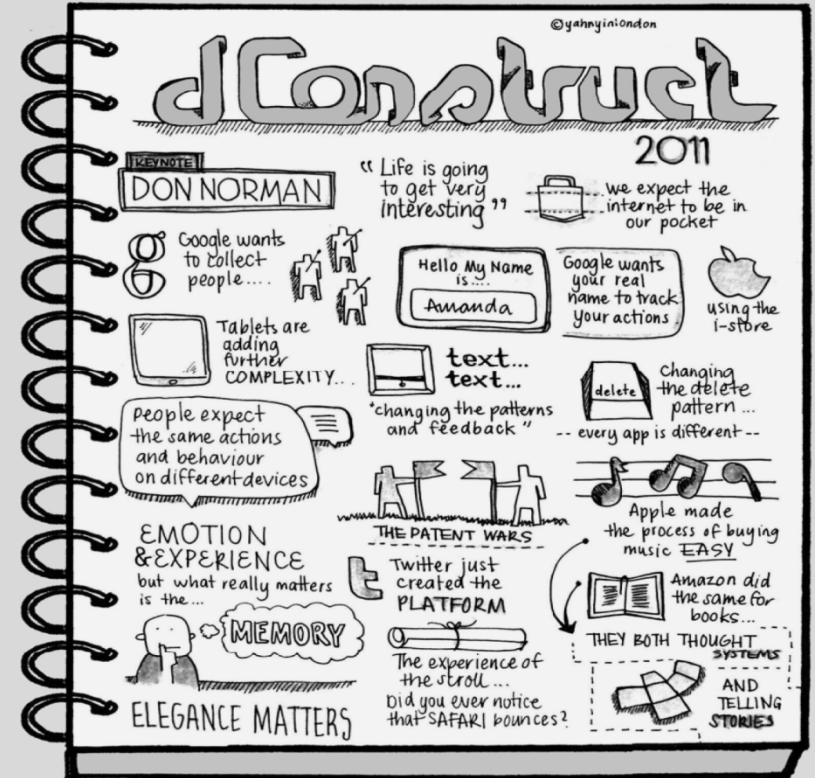 ©yahnyinlondon
dConstruct
2011
KEYNOTE
DON NORMAN
"Life is going
to get very
interesting"
we expect the
internet to be in
our pocket
g
Google wants
to collect
people....
Hello My Name
is....
Amanda
Google wants
your real
name to track
your actions
using the
i-store
Tablets are
adding
further
COMPLEXITY...
text...
text...
"changing the patterns
and feedback"
delete
Changing
the delete
pattern...
-- every app is different --
People expect
the same actions
and behaviour
on different devices
THE PATENT WARS
Apple made
the process of buying
music EASY
EMOTION
&EXPERIENCE
but what really matters
is the...
MEMORY
t
Twitter just
created the
PLATFORM
Amazon did
the same for
books...
THEY BOTH THOUGHT
SYSTEMS
The experience of
the scroll...
Did you ever notice
that SAFARI bounces?
AND
TELLING
STORIES
ELEGANCE MATTERS